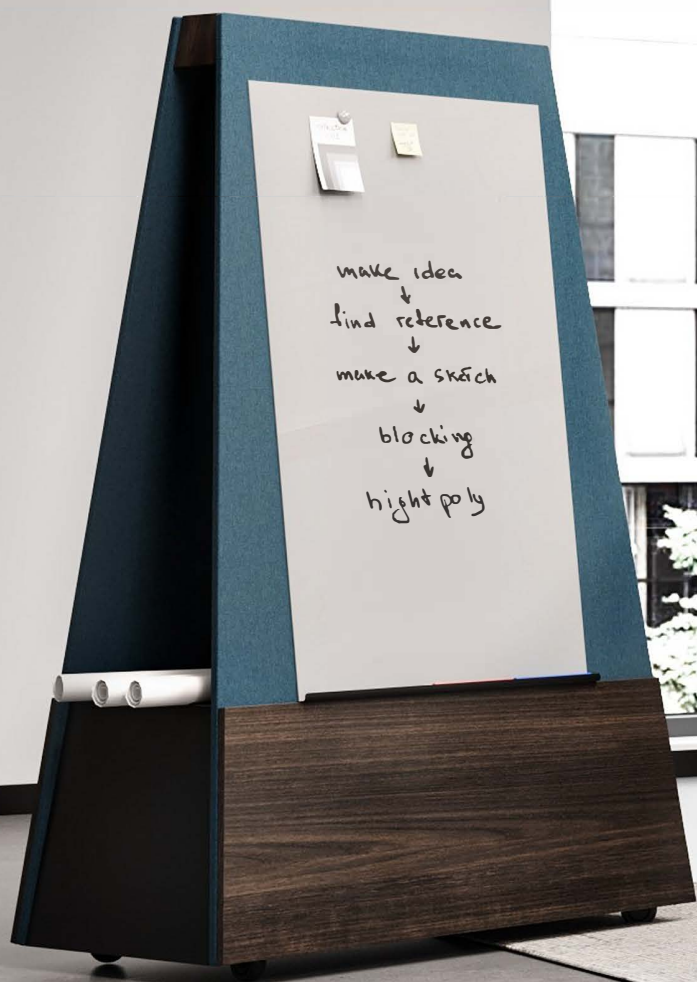 make idea
↓
find reference
↓
make a sketch
↓
blocking
↓
hight poly